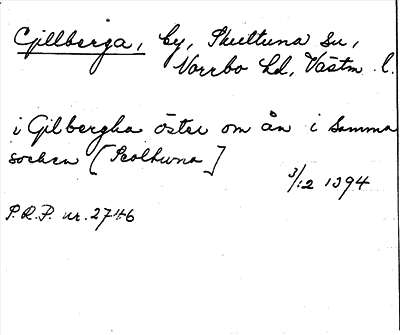 Gillberga, by, Skultuna Sn,
Norrbo hd, Västm. l.
i Gilbergha öster om ån i samma
socken [Skolthuna]
3/12 1394
P.R.P. nr. 2746